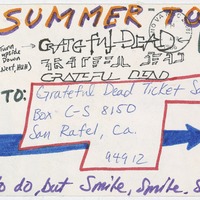 SUMMER TO
Turn
upside
Down
Neet, Huh
GRATEFUL DEAD
GRATEFUL DEAD
GRATEFUL DEAD
TO:
Grateful Dead Ticket Sa
Box C-S 8150
San Rafel, Ca.
94912
to do, but Smile, Smile, S